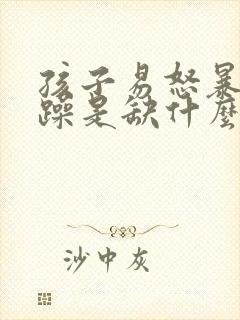 孩子易怒暴
躁是缺什麼
沙中灰